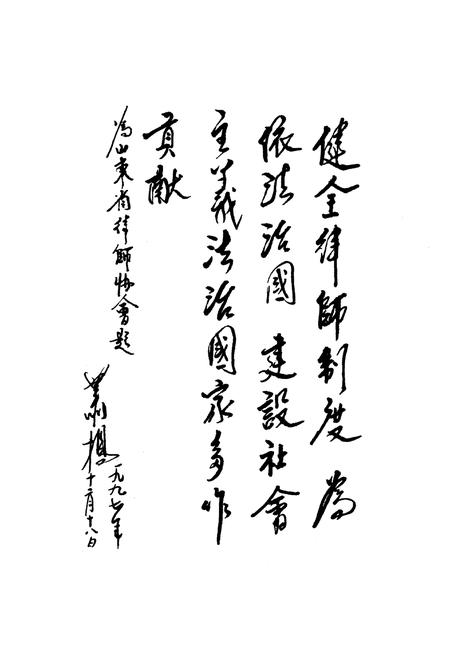 健全律師制度為
依法治國建設社會
主義法治國家多作
貢献
為山東省律師協會題
萧揚
一九九七年
十二月十八日